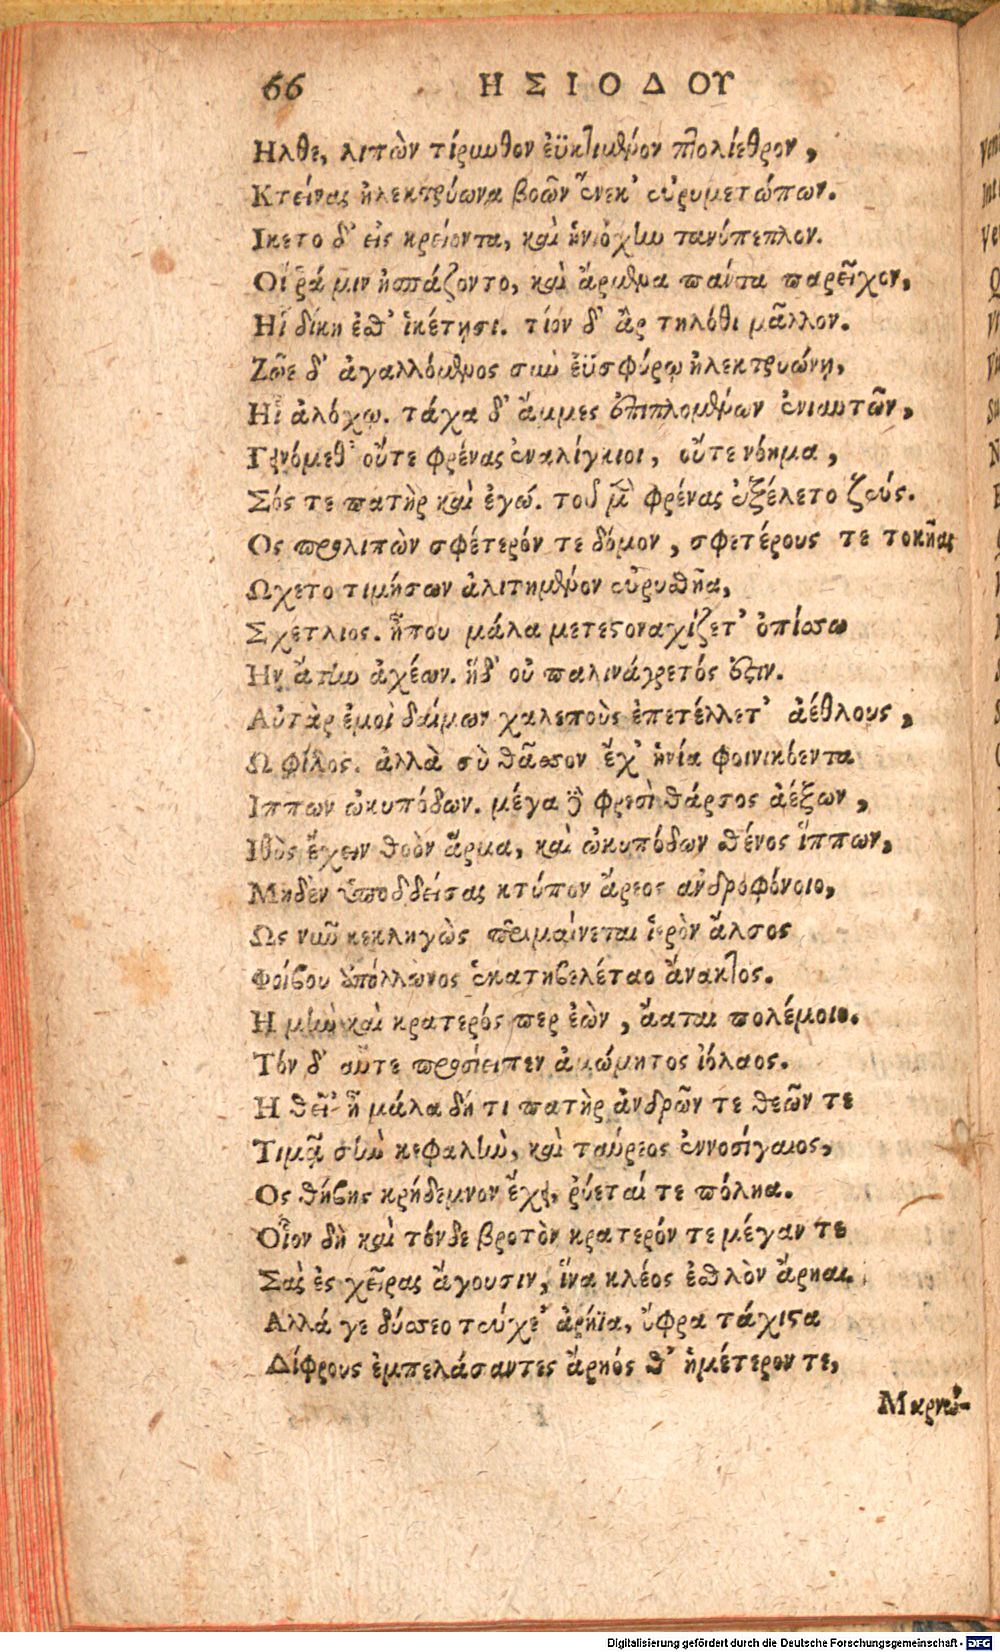 66 ΗΣΙΟΔΟΥ
Ηλθε, λιπὼν τίρυνθον ἐϋκτιμένον πτολίεθρον,
Κτείνας ἠλεκτρύωνα βοῶν ἕνεκ' εὐρυμετώπων.
Ικετο δ' εἰς κρείοντα, καὶ ἡνιόχην τανύπεπλον.
Οἵ ῥά μιν ἠσπάζοντο, καὶ ἄρμενα πάντα παρεῖχον,
Ηἷ δίκη ἔσθ' ἱκέτῃσι. τίον δ' ἂρ τηλόθι μᾶλλον.
Ζῶε δ' ἀγαλλόμενος σὺν ἐϋσφύρῳ ἠλεκτρυώνῃ,
Ηἷ ἀλόχῳ. τάχα δ' ἄμμες ἐπιπλομένων ἐνιαυτῶν,
Γεινόμεθ' οὔτε φρένας ἐναλίγκιοι, οὔτε νόημα,
Σός τε πατὴρ καὶ ἐγώ. τοῦ μὲν φρένας ἐξέλετο ζεύς.
Ος προλιπὼν σφέτερόν τε δόμον, σφετέρους τε τοκῆας
Ωχετο τιμήσων ἀλιτήμενον εὐρυσθῆα,
Σχέτλιος. ἦπου μάλα μετεστοναχίζετ' ὀπίσσω
Ην ἄτην ἀχέων. ἥδ' οὐ παλινάγρετός ἐστιν.
Αὐτὰρ ἐμοὶ δαίμων χαλεποὺς ἐπετέλλετ' ἀέθλους,
Ω φίλος. ἀλλὰ σὺ θᾶσσον ἔχ' ἡνία φοινικόεντα
Ιππων ὠκυπόδων. μέγα δὲ φρεσὶ θάρσος ἀέξων,
Ιθὺς ἔχειν θοὸν ἅρμα, καὶ ὠκυπόδων σθένος ἵππων,
Μηδὲν ὑποδδείσας κτύπον ἄρεος ἀνδροφόνοιο,
Ως νῦν κεκληγὼς περιμαίνεται ἱερὸν ἄλσος
Φοίβου ἀπόλλωνος ἑκατηβελέταο ἄνακτος.
Η μὴν καὶ κρατερός περ ἐὼν, ἄαται πολέμοιο.
Τόν δ' αὖτε προσέειπεν ἀμώμητος ἰόλαος.
Η θεῖ' ἦ μάλα δή τι πατὴρ ἀνδρῶν τε θεῶν τε
Τιμᾷ σὴν κεφαλὴν, καὶ ταύρεος ἐννοσίγαιος,
Ος θήβης κρήδεμνον ἔχει, ῥύεταί τε πόληα.
Οἷον δὴ καὶ τόνδε βροτὸν κρατερόν τε μέγαν τε
Σὰς ἐς χεῖρας ἄγουσιν, ἵνα κλέος ἐσθλὸν ἄρηαι.
Αλλά γε δύσεο τεύχε' ἀρήϊα, ὄφρα τάχιστα
Δίφρους ἐμπελάσαντες ἄρηός θ' ἡμέτερον τε,
Μαρνώ-
Digitalisierung gefördert durch die Deutsche Forschungsgemeinschaft - DFG